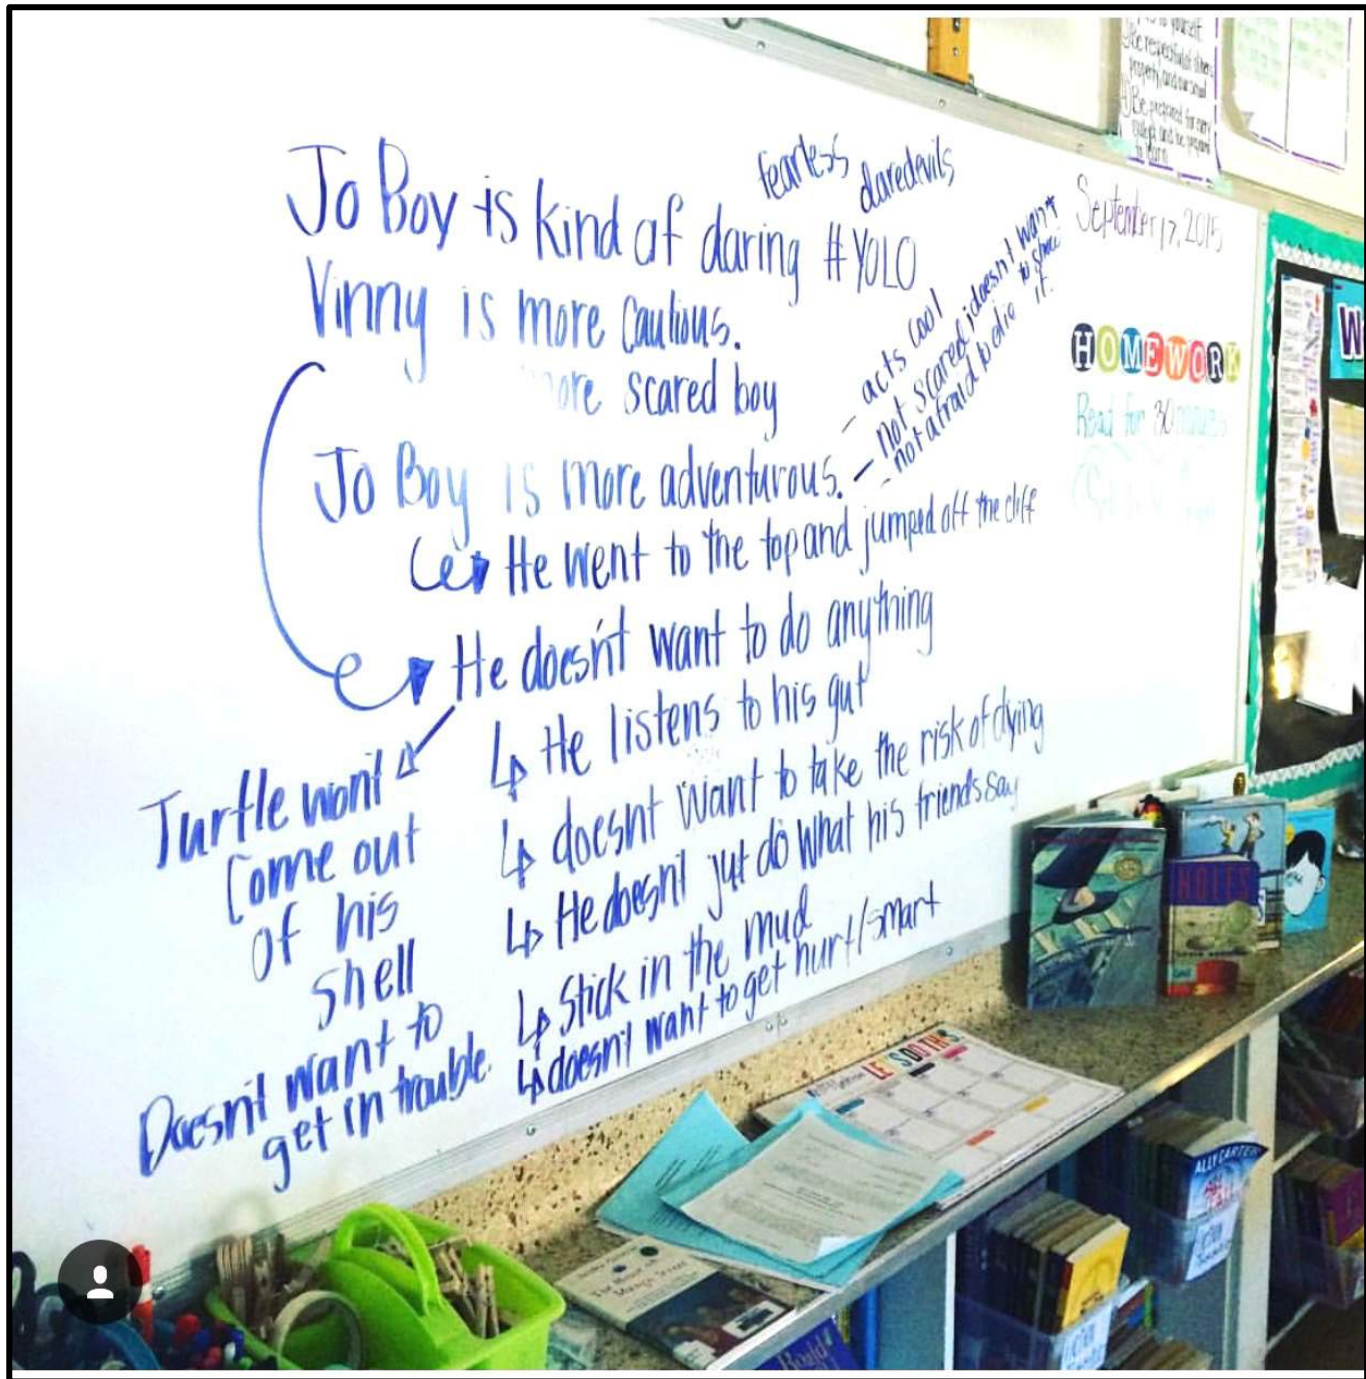 fearless
daredevils
Jo Boy is kind of daring #YOLO
Vinny is more cautious.
more scared boy
Jo Boy is more adventurous.
- acts cool
- not scared; doesn't want to show it.
- not afraid to die
He went to the top and jumped off the cliff
He doesn't want to do anything
↳ He listens to his gut
↳ doesnt want to take the risk of dying
↳ He doesn't jut do what his friends say
↳ Stick in the mud
↳ doesn't want to get hurt/smart
Turtle won't
come out
of his
shell
Doesn't want to
get in trouble.
September 17, 2015
HOMEWORK
Read for 30 minutes
yourself
Be respectful of others
property, and our school
Be prepared for every
subject and be prepared
to learn
W
HOLES
ALLY CARTER
Roald